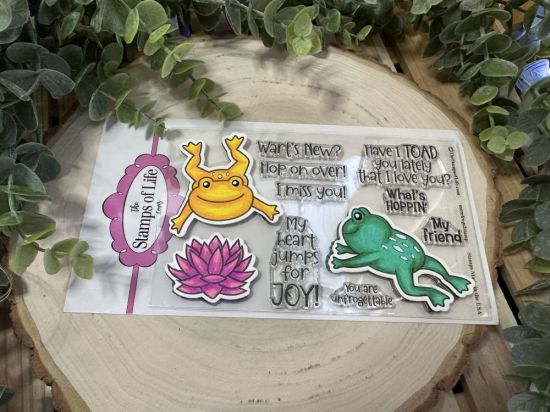 the
Stamps of Life
.com
Wart's New?
Hop on over!
I miss you!
Have I TOAD
you lately
that I love you?
What's
HOPPIN'
My
friend
My
heart
jumps
for
JOY!
You are
unfrogettable